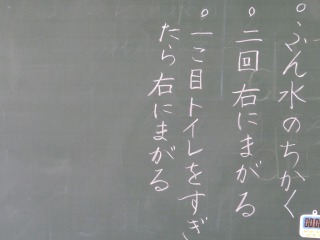 ○ふん水のちかく
○二回右にまがる
○一こ目トイレをすぎ
たら右にまがる